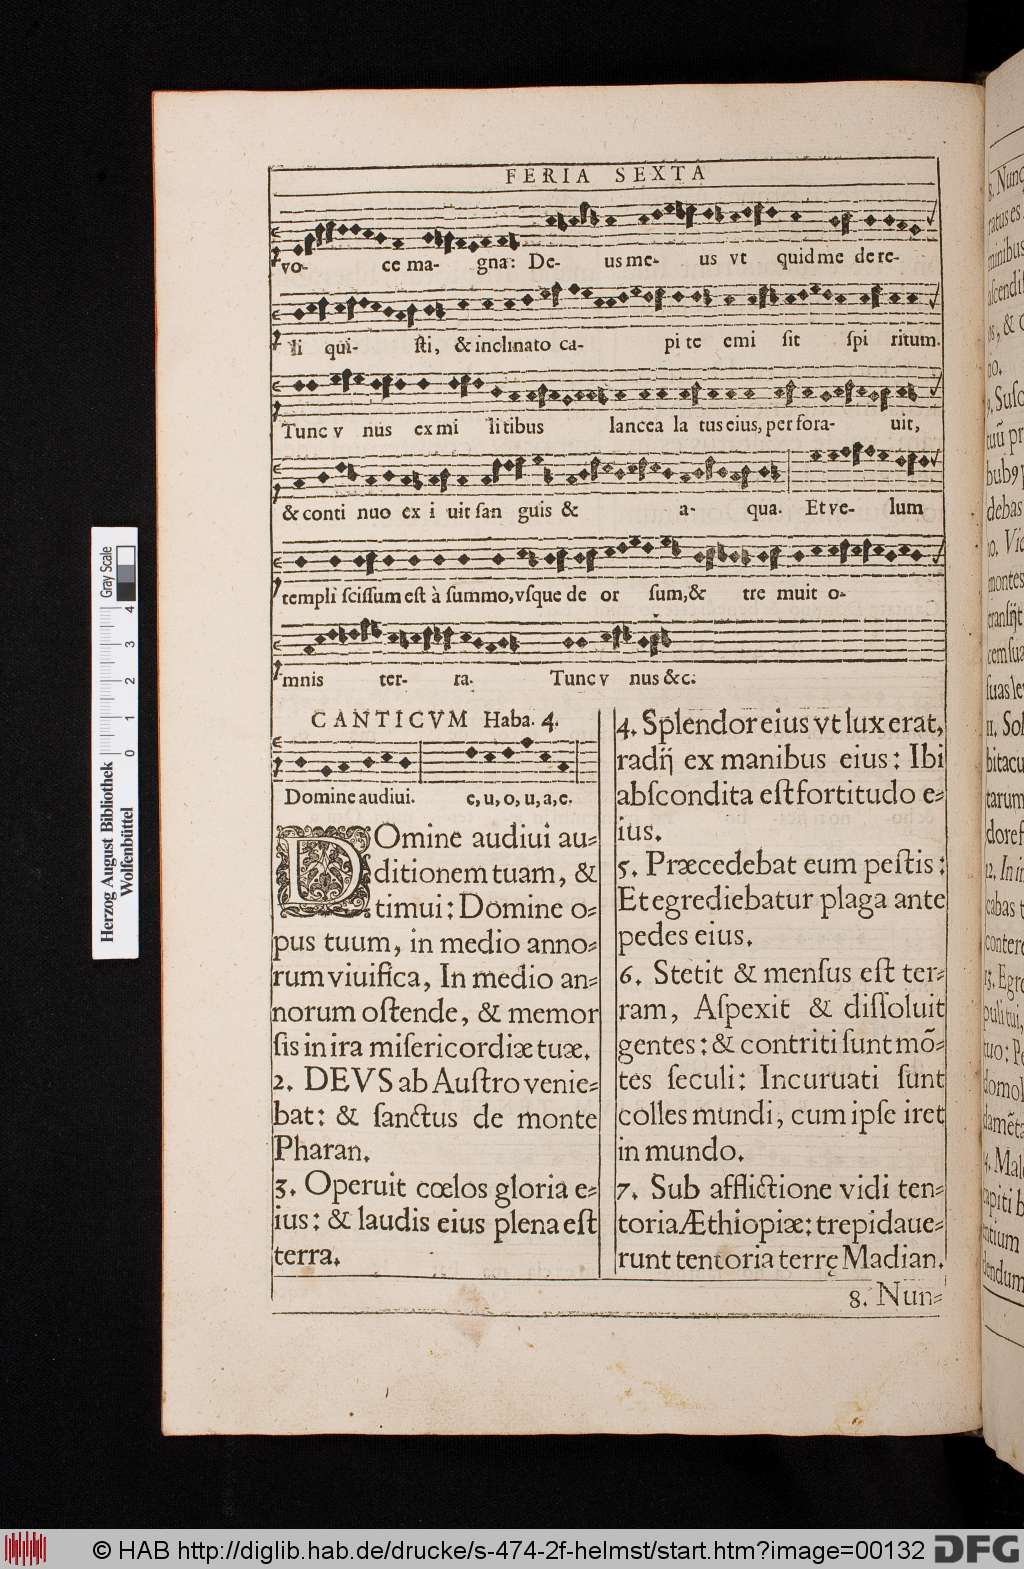 FERIA SEXTA
vo- ce ma- gna: De- us me- us vt quid me de re-
li qui- ſti, & inclinato ca- pi te emi ſit ſpi ritum.
Tunc v nus ex mi li tibus lancea la tus eius, per fora- uit,
& conti nuo ex i uit ſan guis & a- qua. Et ve- lum
templi ſciſſum eſt à ſummo, vſque de or ſum, & tre muit o-
mnis ter- ra. Tunc v nus &c.
CANTICVM Haba. 4.
Domine audiui. e, u, o, u, a, e.
DOmine audiui au-
ditionem tuam, &
timui: Domine o-
pus tuum, in medio anno-
rum viuifica, In medio an-
norum oſtende, & memor
ſis in ira miſericordiæ tuæ.
2. DEVS ab Auſtro venie-
bat: & ſanctus de monte
Pharan.
3. Operuit cœlos gloria e-
ius: & laudis eius plena eſt
terra.
4. Splendor eius vt lux erat,
radij ex manibus eius: Ibi
abſcondita eſt fortitudo e-
ius.
5. Præcedebat eum peſtis:
Et egrediebatur plaga ante
pedes eius.
6. Stetit & menſus eſt ter-
ram, Aſpexit & diſſoluit
gentes: & contriti ſunt mõ-
tes ſeculi: Incuruati ſunt
colles mundi, cum ipſe iret
in mundo.
7. Sub afflictione vidi ten-
toria Æthiopiæ: trepidaue-
runt tentoria terrę Madian.
8. Nun-
Herzog August Bibliothek
Wolfenbüttel
0 1 2 3 4
Gray Scale
© HAB http://diglib.hab.de/drucke/s-474-2f-helmst/start.htm?image=00132
DFG